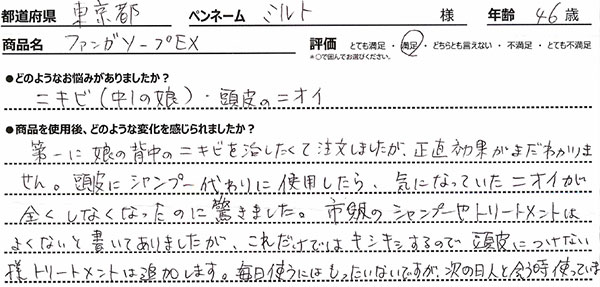 都道府県 東京都 ペンネーム ミルト 様 年齢 46 歳
商品名 ファンガソープEX 評価 とても満足 ・ 満足 ・ どちらとも言えない ・ 不満足 ・ とても不満足
*○で囲んでお選びください。
●どのようなお悩みがありましたか？
ニキビ(中1の娘)・頭皮のニオイ
●商品を使用後、どのような変化を感じられましたか？
第一に娘の背中のニキビを治したくて注文しましたが、正直効果がまだわかりま
せん。頭皮にシャンプー代わりに使用したら、気になっていたニオイが
全くしなくなったのに驚きました。市販のシャンプーやトリートメントは
よくないと書いてありましたが、これだけではキシキシするので頭皮につけない
様トリートメントは追加します。毎日使うにはもったいないですが、次の日人と会う時使っていま